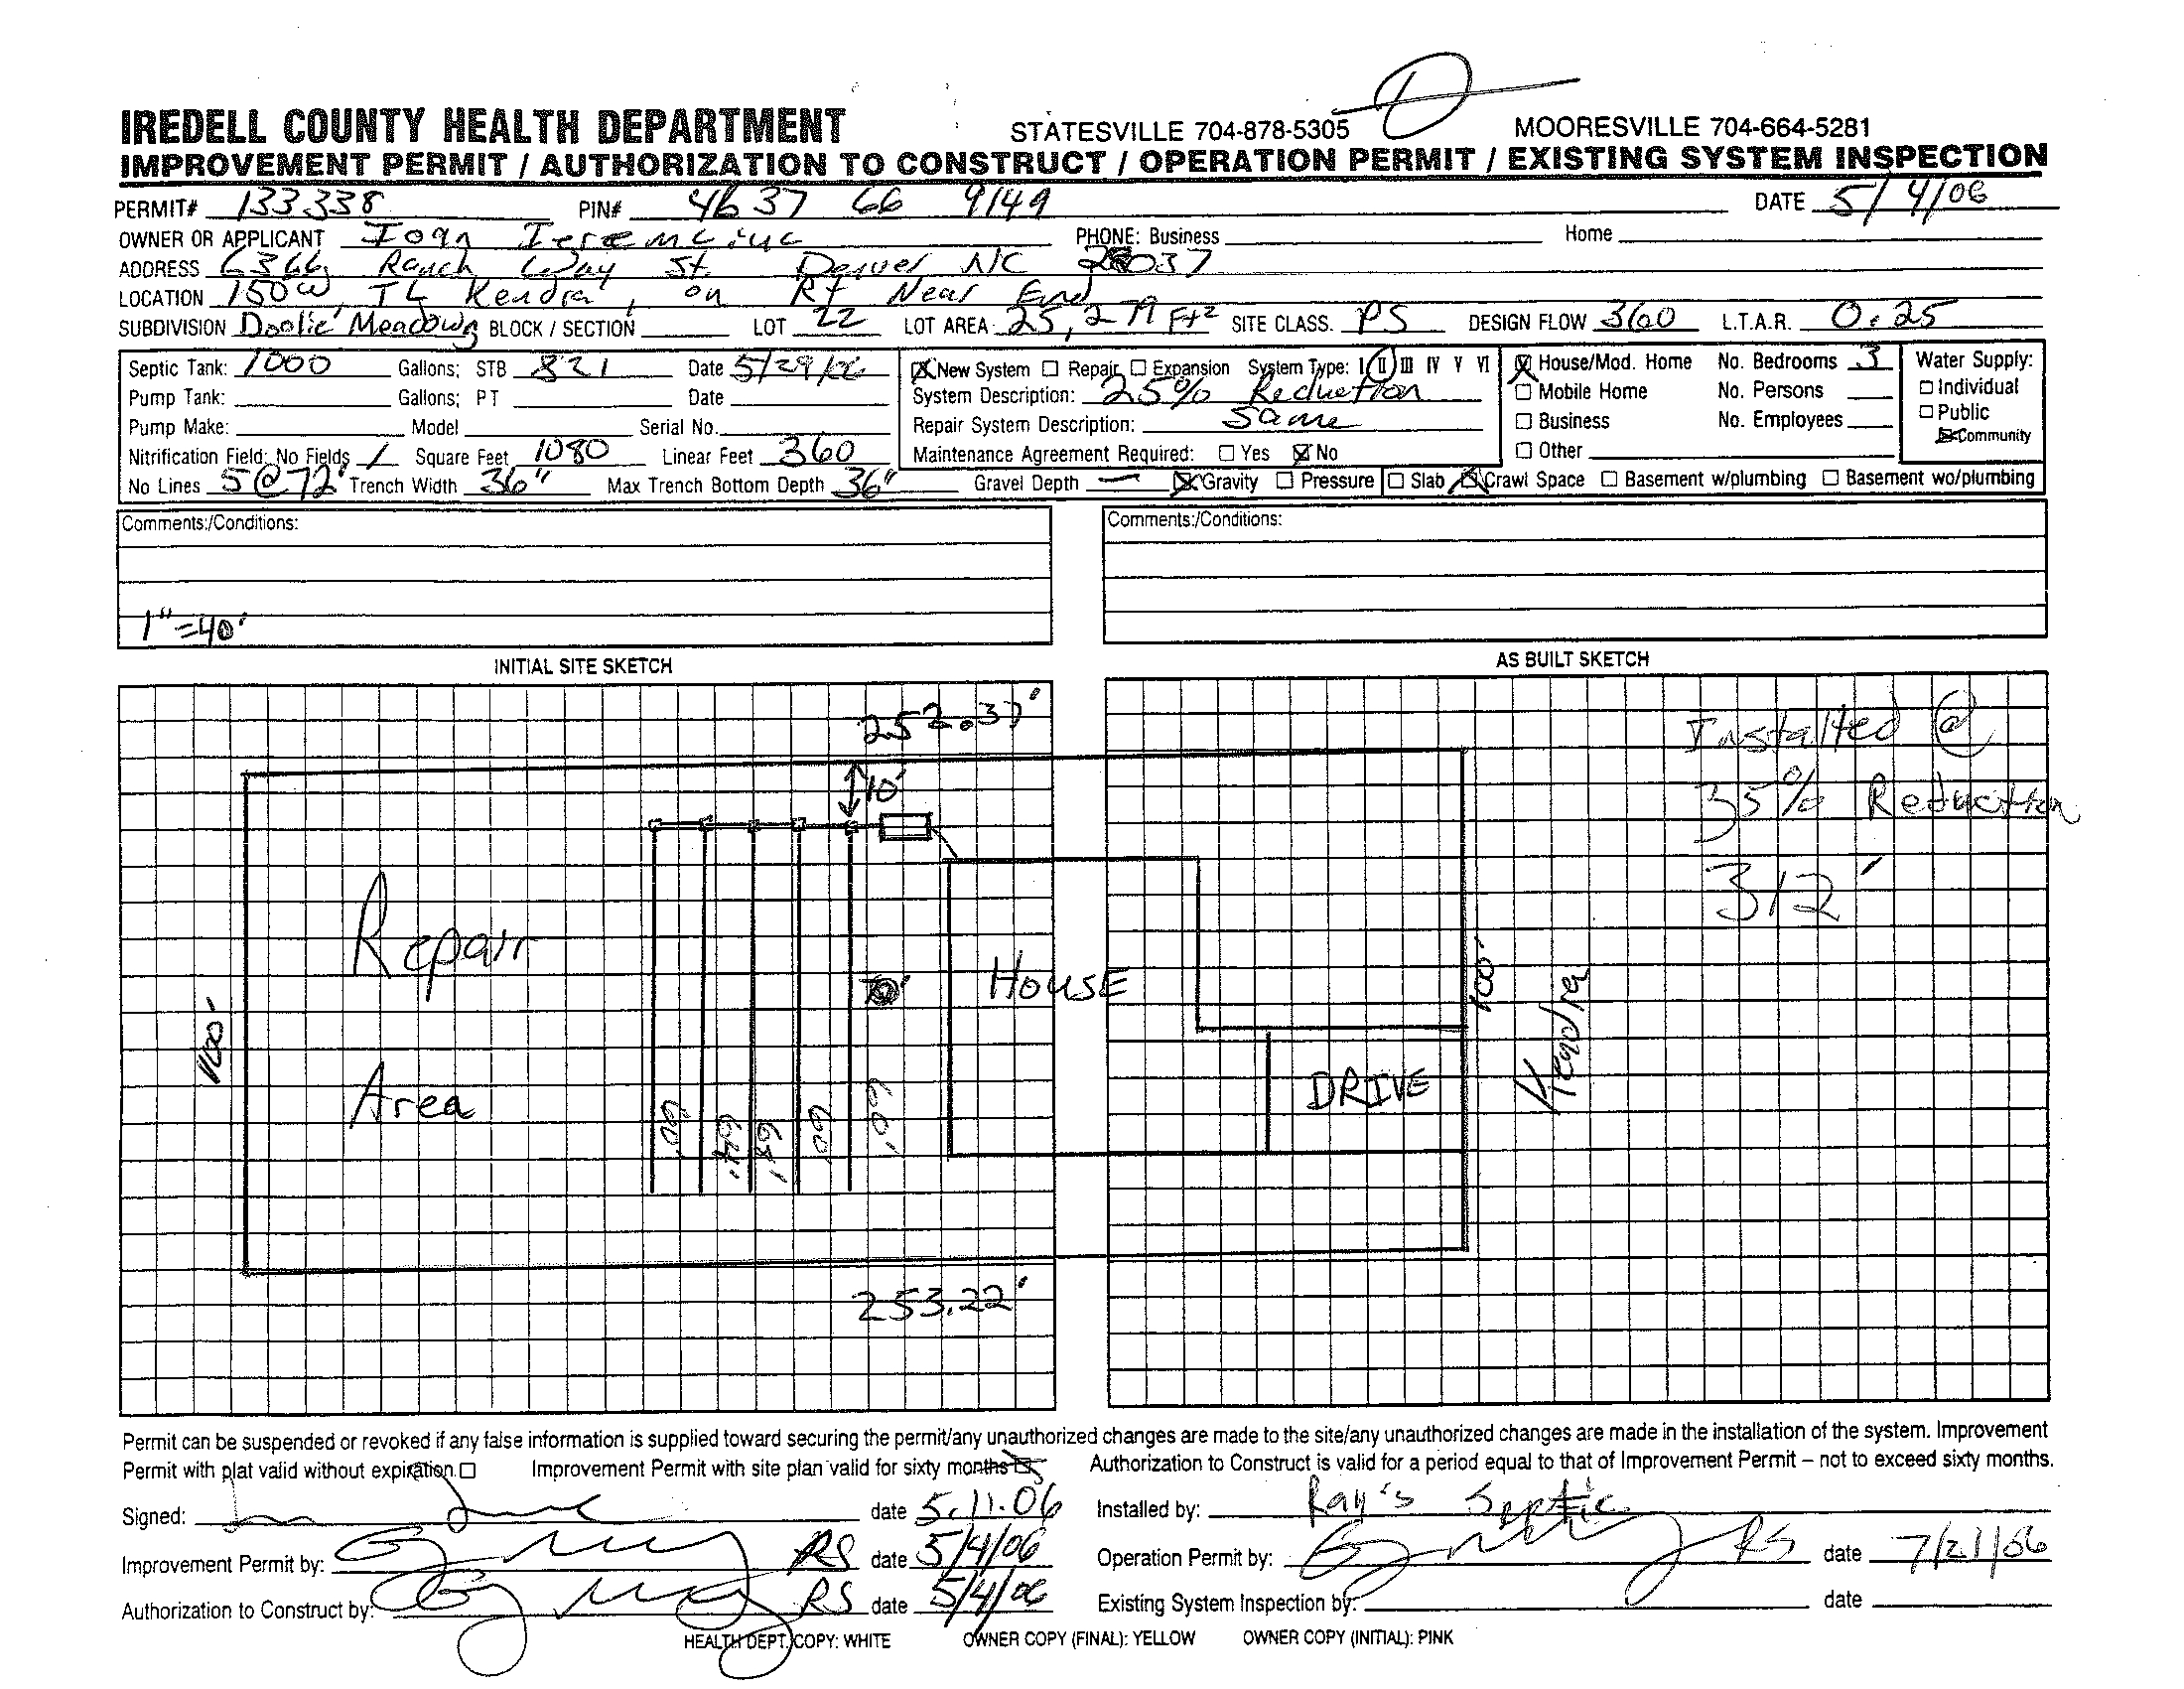 IREDELL COUNTY HEALTH DEPARTMENT STATESVILLE 704-878-5305 MOORESVILLE 704-664-5281
IMPROVEMENT PERMIT / AUTHORIZATION TO CONSTRUCT / OPERATION PERMIT / EXISTING SYSTEM INSPECTION
PERMIT# 133338 PIN# 4637 66 9149 DATE 5/4/06
OWNER OR APPLICANT Ioan PHONE: Business Home
ADDRESS 6366 Ranch Way St Denver NC 28037
LOCATION 150W, TL Kendra, on Rt Near End
SUBDIVISION Doolie Meadows BLOCK / SECTION LOT 22 LOT AREA 25,279 Ft² SITE CLASS. PS DESIGN FLOW 360 L.T.A.R. 0.25
Septic Tank: 1000 Gallons; STB 821 Date 5/29/06
Pump Tank: Gallons; PT Date
Pump Make: Model Serial No.
Nitrification Field: No Fields 1 Square Feet 1080 Linear Feet 360
No Lines 5@72' Trench Width 36" Max Trench Bottom Depth 36" Gravel Depth — ☒ Gravity ☐ Pressure
☒ New System ☐ Repair ☐ Expansion System Type: I II III IV V VI
System Description: 25% Reduction
Repair System Description: Same
Maintenance Agreement Required: ☐ Yes ☒ No
☒ House/Mod. Home No. Bedrooms 3
☐ Mobile Home No. Persons
☐ Business No. Employees
☐ Other
Water Supply:
☐ Individual
☐ Public
☒ Community
☐ Slab ☒ Crawl Space ☐ Basement w/plumbing ☐ Basement wo/plumbing
Comments:/Conditions:
1"=40'
Comments:/Conditions:
INITIAL SITE SKETCH
AS BUILT SKETCH
252.37'
Installed @
35% Reduction
312'
10'
Repair
Area
HOUSE
DRIVE
100'
100'
Kendra
60'
64'
68'
60'
60'
253.22'
Permit can be suspended or revoked if any false information is supplied toward securing the permit/any unauthorized changes are made to the site/any unauthorized changes are made in the installation of the system. Improvement
Permit with plat valid without expiration. ☐ Improvement Permit with site plan valid for sixty months ☒ Authorization to Construct is valid for a period equal to that of Improvement Permit – not to exceed sixty months.
Signed: date 5.11.06 Installed by: Ray's Septic
Improvement Permit by: RS date 5/4/06 Operation Permit by: RS date 7/21/06
Authorization to Construct by: RS date 5/4/06 Existing System Inspection by: date
HEALTH DEPT. COPY: WHITE OWNER COPY (FINAL): YELLOW OWNER COPY (INITIAL): PINK